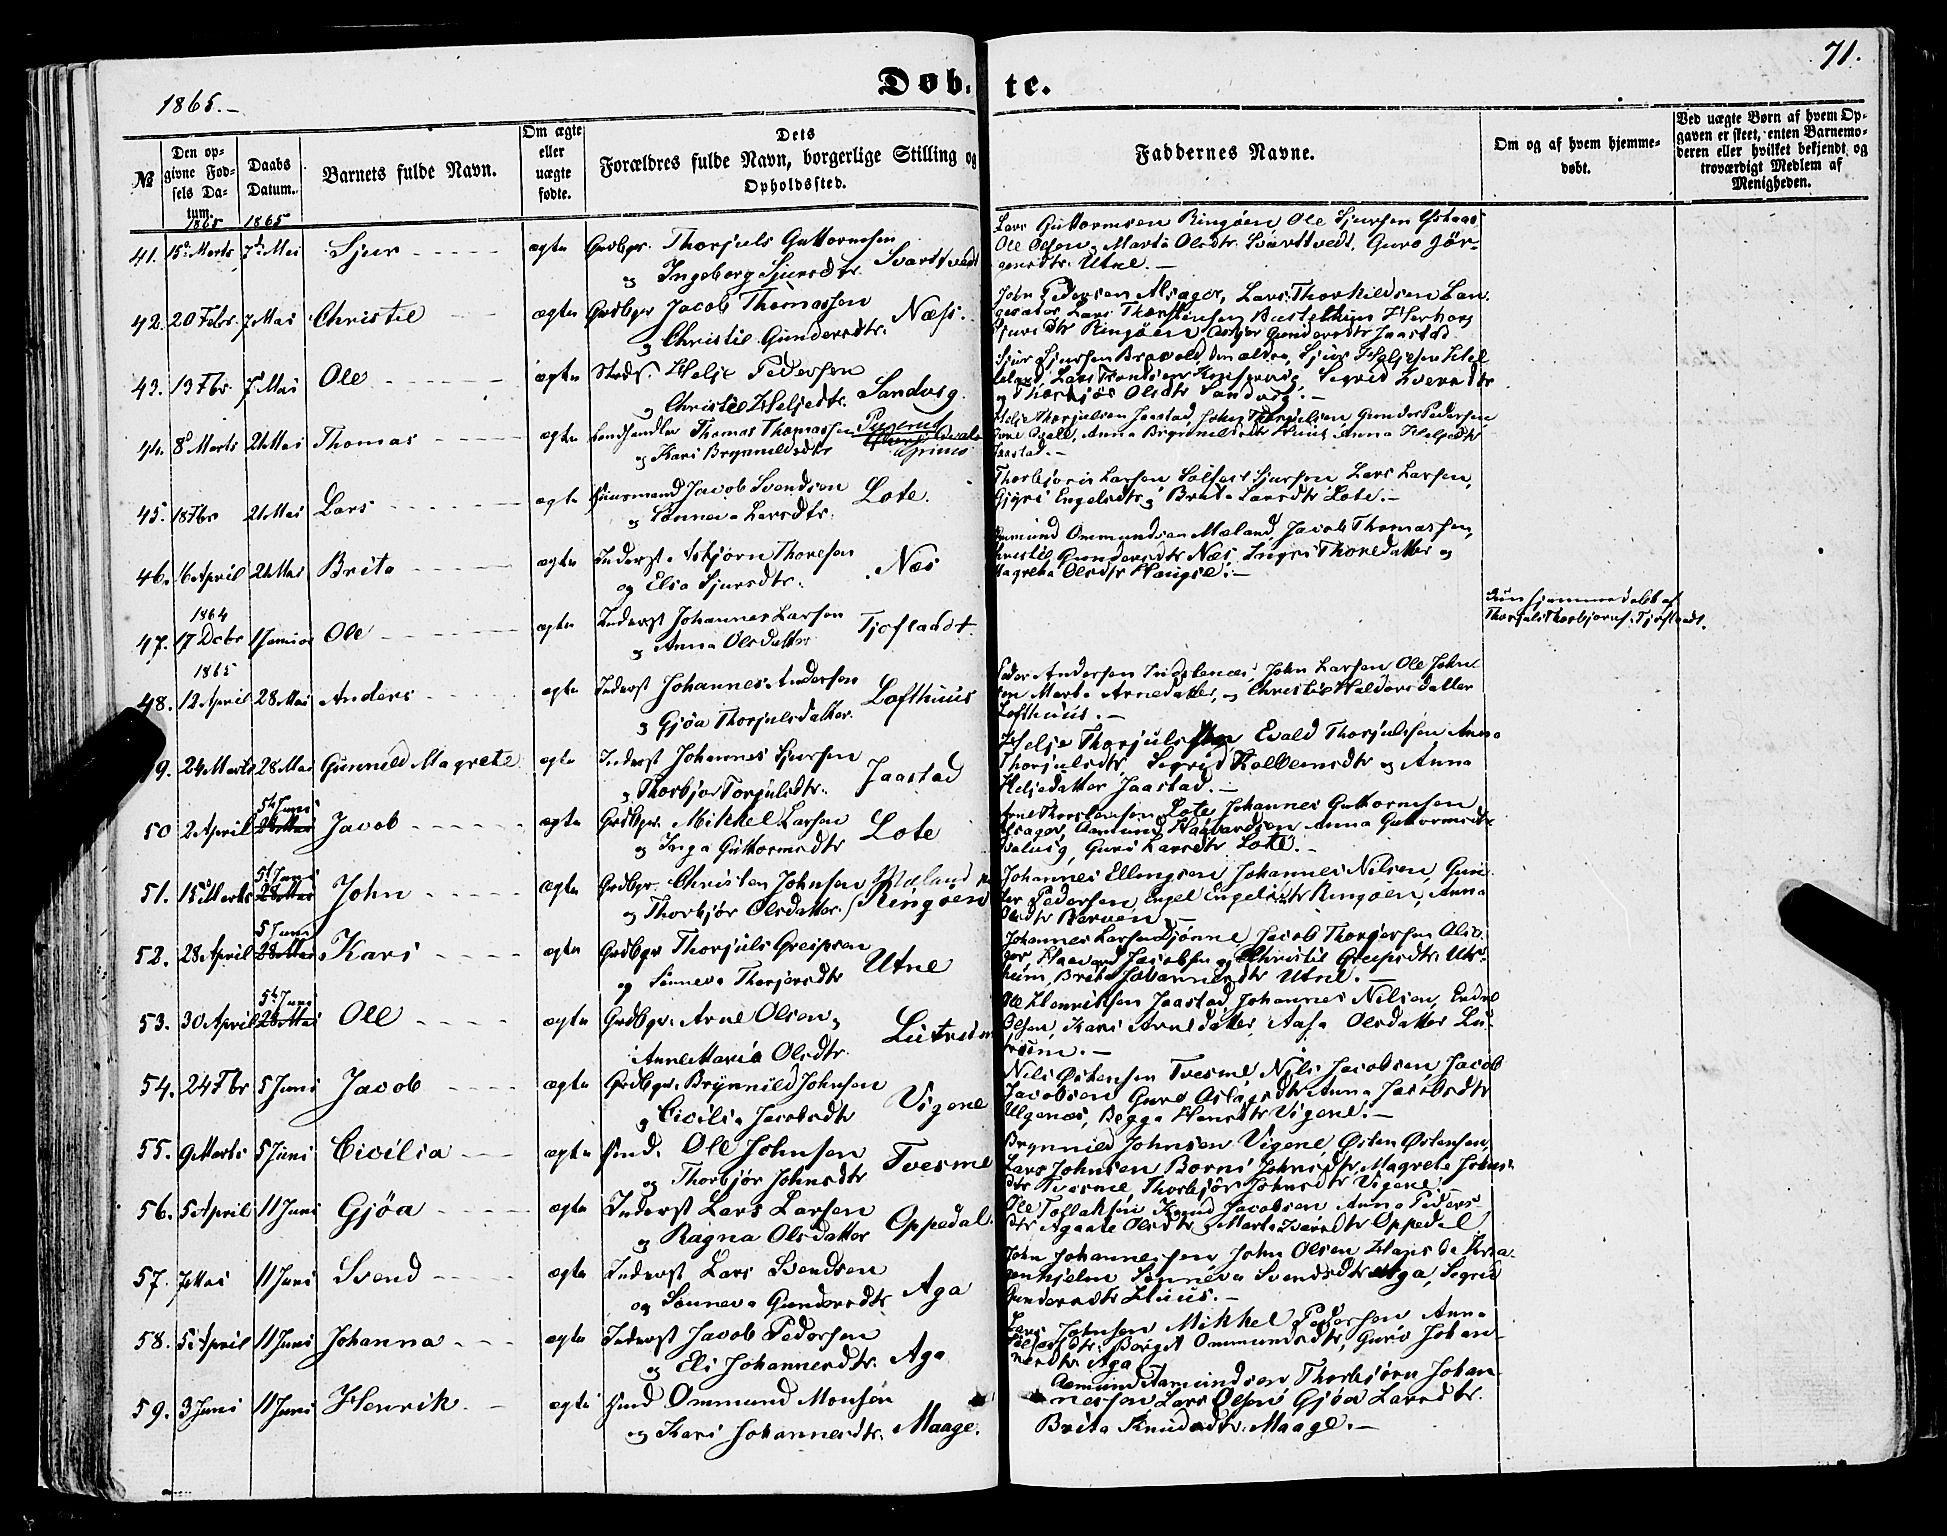 71.
1865.-
Døb. te.
№
Den opgivne Fødsels Datum.
Daabs Datum.
Barnets fulde Navn.
Om ægte eller uægte fødte.
Dets Forældres fulde Navn, borgerlige Stilling og Opholdssted.
Faddernes Navne.
Om og af hvem hjemmedøbt.
Ved uægte Børn af hvem Opgaven er skeet, enten Barnemoderen eller hvilket bekjendt og troværdigt Medlem af Menigheden.
1865 1865
41. 15de Marts 7de Mai Sjur ægte Grdbgr. Thorjuls Guttormsen
og Ingeborg Sjursdtr. Svartvedt
Lars Guttormsen Ringøen Ole Sjursen
Ole Olsen, Marta Olsdtr. Svartvedt, Guro Jør-
gensdtr. Utne.-
42. 20 Febr 7 Mai Christie ægte Grdbgr Jacob Thomassen
og Christie Gundersdtr. Næss.
John Pedersen Alsager, Lars Thorkildsen Lan
gesæter, Lars
Sjursdtr Ringøen Gundersdtr Jaastad
43. 13 Fbr 7 Mai Ole ægte Helje Pedersen
og Christie Heljedtr. Sandvig.
Sjur Sjursen den ældre, Sjur Heljesen
Lars Sigrid Iversdtr
og Thorbjør Olsdtr Sandvig.-
44. 8de Marts 21 Mai Thomas ægte Landhandler Thomas Thomassen
og Kari Brynnildsdtr Grimo
Helje Thorjulsen Jaastad, Gunder Pedersen
Anna Brynnildsdtr Huus Anna Heljedtr
Jaastad.-
45. 18 Fbr 21 Mai Lars ægte Huusmand Jacob Svendsen
og Sønneva Larsdtr. Lote.
Thorbjørn Larsen Sjursen, Lars Larsen,
Gjøri Engelsdtr og Brita Larsdtr Lote.-
46. 16 April 21 Mai Brita ægte Inderst Asbjørn Thoresen
og Elsa Sjursdtr. Næs
Ommundsen Mæland, Jacob Thomassen,
Christie Gundersdtr Næs, Ingri Thoredatter og
Magretha Olsdtr Haugse.-
1864
47. 17 Decbr 1 Januar Ole ægte Inderst Johannes Larsen
og Anna Olsdatter Tjoflaadt.
hjemmedøbt af
Thorjuls Thorbjørns. Tjoflaadt.
1865
48. 12 April 28 Mai Anders ægte Inderst Johannes Andersen
og Gjøa Thorjulsdatter. Lofthuus
Peder Andersen John Larsen Ole John
sen Marta Arnedatter, og Christie Haldorsdatter
Lofthuus.-
49. 24 Marts 28 Mai Gunnild Magrete ægte Inderst Johannes Sjursen
og Thorbjør Torjulsdtr. Jaastad
Helje Thorjulsen Evald Thorjulsen Anna
Thorjulsdtr, Sigrid og Anna
Heljedatter Jaastad.-
5te Juni
50 2 April 28 Mai Jacob ægte Grdbgr. Mikkel Larsen
og Inga Guttormsdtr Lote
Arne Thorstensen Lote Johannes Guttormsen
Alsager, Aamund Anna Guttormsdtr
Guri Larsdtr Lote.-
5te Juni
51. 15 Marts 28 Mai John ægte Grdbgr. Christen Johnsen Mæland
og Thorbjør Olsdatter Ringøen
Johannes Ellingsen Johannes Nilsen, Gun
der Pedersen Engel Engelsdtr Ringøen, Anna
Olsdtr Berven.-
5 Juni
52. 28 April 28 Mai Kari ægte Grdbgr Thorjuls Greipsen
og Sønneva Thorjersdtr Utne
Johannes Larsen Djønne, Jacob Thorjersen Alsa
ger, Haavard Jacobsen og Christie Greipsdtr. Utr-
heim, Brita Johannesdtr Utne.-
5te Juni
53. 30 April 28 Mai Ole ægte Grdbgr. Arne Olsen og
Anne Maria Olsdtr. Lutreim
Ole Henriksen Jaastad, Johannes Nilsen, Endre
Olsen, Kari Arnesdatter, Aasa Olsdatter Lu-
treim.-
54. 24 Fbr 5 Juni Jacob ægte Grdbgr. Brynnild Johnsen
og Cicilia Jacobsdtr Vigene
Nils Østensen Tvesme, Nils Jacobsen, Jacob
Jacobsen Guro Aslagsdtr Anna Jacobsdtr
Ulgenæs, Begga Hansdtr Vigene.-
55. 9 Marts 5 Juni Cicilia ægte Huusmd. Ole Johnsen
og Thorbjør Johnsdtr Tvesme
Brynnild Johnsen Vigene, Østen Østensen,
Lars Johnsen Borni Johnsdtr, Magrete Johns-
dtr Tvesme Thorbjør Johnsdtr Vigene.
56. 5 April 11 Juni Gjøa ægte Inderst Lars Larsen
og Ragna Olsdatter Oppedal.
Ole Knud Jacobsen Anna Peders-
dtr Agaate Olsdtr og Marta Iversdtr Oppedal
57. 7 Mai 11 Juni Svend ægte Inderst Lars Svendsen
og Sønneva Gundersdtr. Aga
John Johannessen, John Olsen Hans de Kra
genhjelm Sønneva Svendsdtr Aga, Sigrid
Gundersdtr Huus.-
58. 5 April 11 Juni Johanna ægte Inderst Jacob Pedersen
og Eli Johannesdtr. Aga
Lars Johnsen Mikkel Pedersen Anna
Borget Ommundsdtr, Guro Johan-
nesdtr Aga
59. 3 Juni 11 Juni Henrik ægte Huusmd Ommund Monsen
og Kari Johannesdtr. Maage.
Aamund Aamundsen Thorbjørn Johan-
nessen, Lars Olsen Gjøa Larsdtr.
Brita Knudsdtr. Maage.-